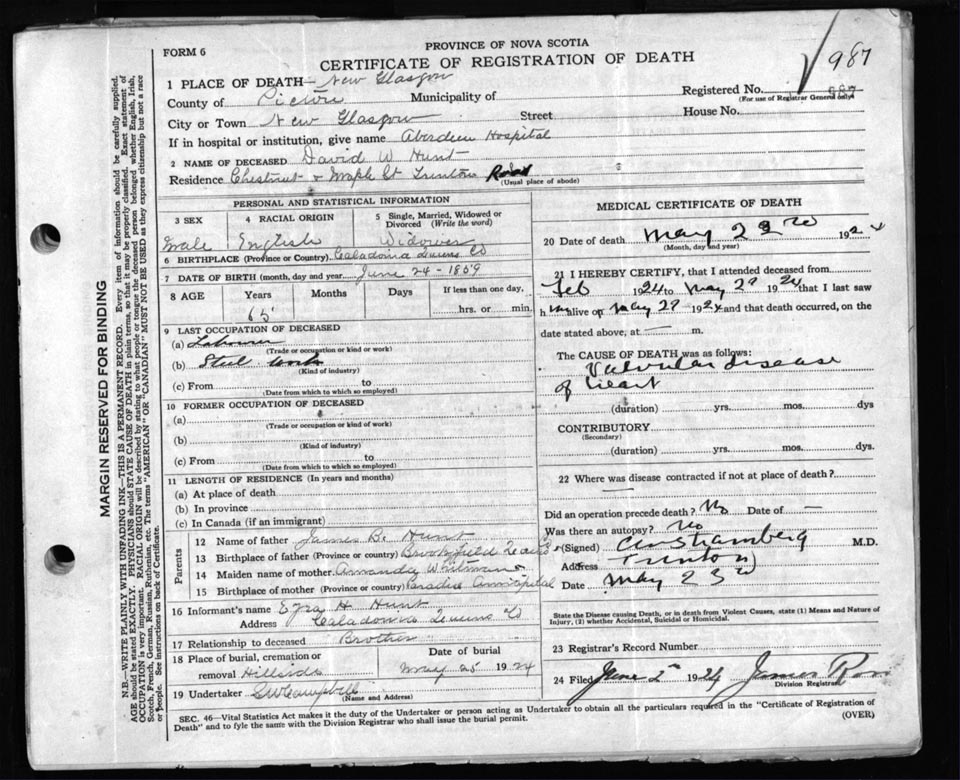 FORM 6
PROVINCE OF NOVA SCOTIA
CERTIFICATE OF REGISTRATION OF DEATH
987
1 PLACE OF DEATH— New Glasgow
Registered No. 987
(For use of Registrar General only)
County of Pictou Municipality of
City or Town New Glasgow Street House No.
If in hospital or institution, give name Aberdeen Hospital
2 NAME OF DECEASED David W Hunt
Residence Chestnut & Maple St Trenton Road
(Usual place of abode)
MARGIN RESERVED FOR BINDING
N.B.—WRITE PLAINLY WITH UNFADING INK—THIS IS A PERMANENT RECORD. Every item of information should be carefully supplied.
AGE should be stated EXACTLY. PHYSICIANS should STATE CAUSE OF DEATH in plain terms, so that it may be properly classified. Exact statement of
OCCUPATION is very important. RACIAL ORIGIN will be described by stating to what people or tongue the deceased person belonged whether English, Irish,
Scotch, French, German, Russian, Ruthenian, etc. The terms "AMERICAN" OR "CANADIAN" MUST NOT BE USED as they express citizenship but not a race
or people. See instructions on back of Certificate.
PERSONAL AND STATISTICAL INFORMATION
3 SEX 4 RACIAL ORIGIN 5 Single, Married, Widowed or
Divorced (Write the word)
Male English Widower
6 BIRTHPLACE (Province or Country) Caladonia Queens Co
7 DATE OF BIRTH (month, day and year) June 24 - 1859
8 AGE Years Months Days If less than one day,
65 hrs. or min.
9 LAST OCCUPATION OF DECEASED
(a) Labourer
(Trade or occupation or kind or work)
(b) Steel Works
(Kind of industry)
(c) From to
(Date from which to which so employed)
10 FORMER OCCUPATION OF DECEASED
(a)
(Trade or occupation or kind of work)
(b)
(Kind of industry)
(c) From to
(Date from which to which so employed)
11 LENGTH OF RESIDENCE (In years and months)
(a) At place of death
(b) In province
(c) In Canada (if an immigrant)
Parents
12 Name of father James B. Hunt
13 Birthplace of father (Province or country) Brookfield Queens Co
14 Maiden name of mother Amanda Whitman
15 Birthplace of mother (Province or country) Paradise
16 Informant's name Ezra H Hunt
Address Caladonia Queens Co
17 Relationship to deceased Brother
18 Place of burial, cremation or Date of burial
removal Hillside May 25 1924
19 Undertaker Campbell
(Name and Address)
MEDICAL CERTIFICATE OF DEATH
20 Date of death May 23rd 1924
(Month, day and year)
21 I HEREBY CERTIFY, that I attended deceased from
Feb 1924 to May 1924 that I last saw
him alive on May 1924 and that death occurred, on the
date stated above, at — m.
The CAUSE OF DEATH was as follows:
Valvular disease
of heart
(duration) yrs. mos. dys
CONTRIBUTORY
(Secondary)
(duration) yrs. mos. dys
22 Where was disease contracted if not at place of death?
Did an operation precede death? No Date of —
Was there an autopsy? No
(Signed) M.D.
Address Trenton
Date May 23rd
State the Disease causing Death, or in death from Violent Causes, state (1) Means and Nature of
Injury, (2) whether Accidental, Suicidal or Homicidal.
23 Registrar's Record Number
24 Filed June 2 1924 James Ross
Division Registrar
SEC. 46—Vital Statistics Act makes it the duty of the Undertaker or person acting as Undertaker to obtain all the particulars required in the "Certificate of Registration of
Death" and to fyle the same with the Division Registrar who shall issue the burial permit.
(OVER)